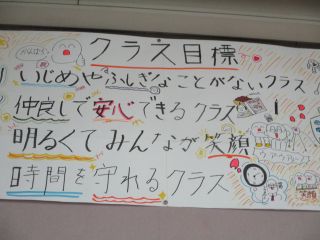 クラス目標
いじめやふしぎなことがないクラス
仲良しで安心できるクラス
明るくてみんなが笑顔
時間を守れるクラス